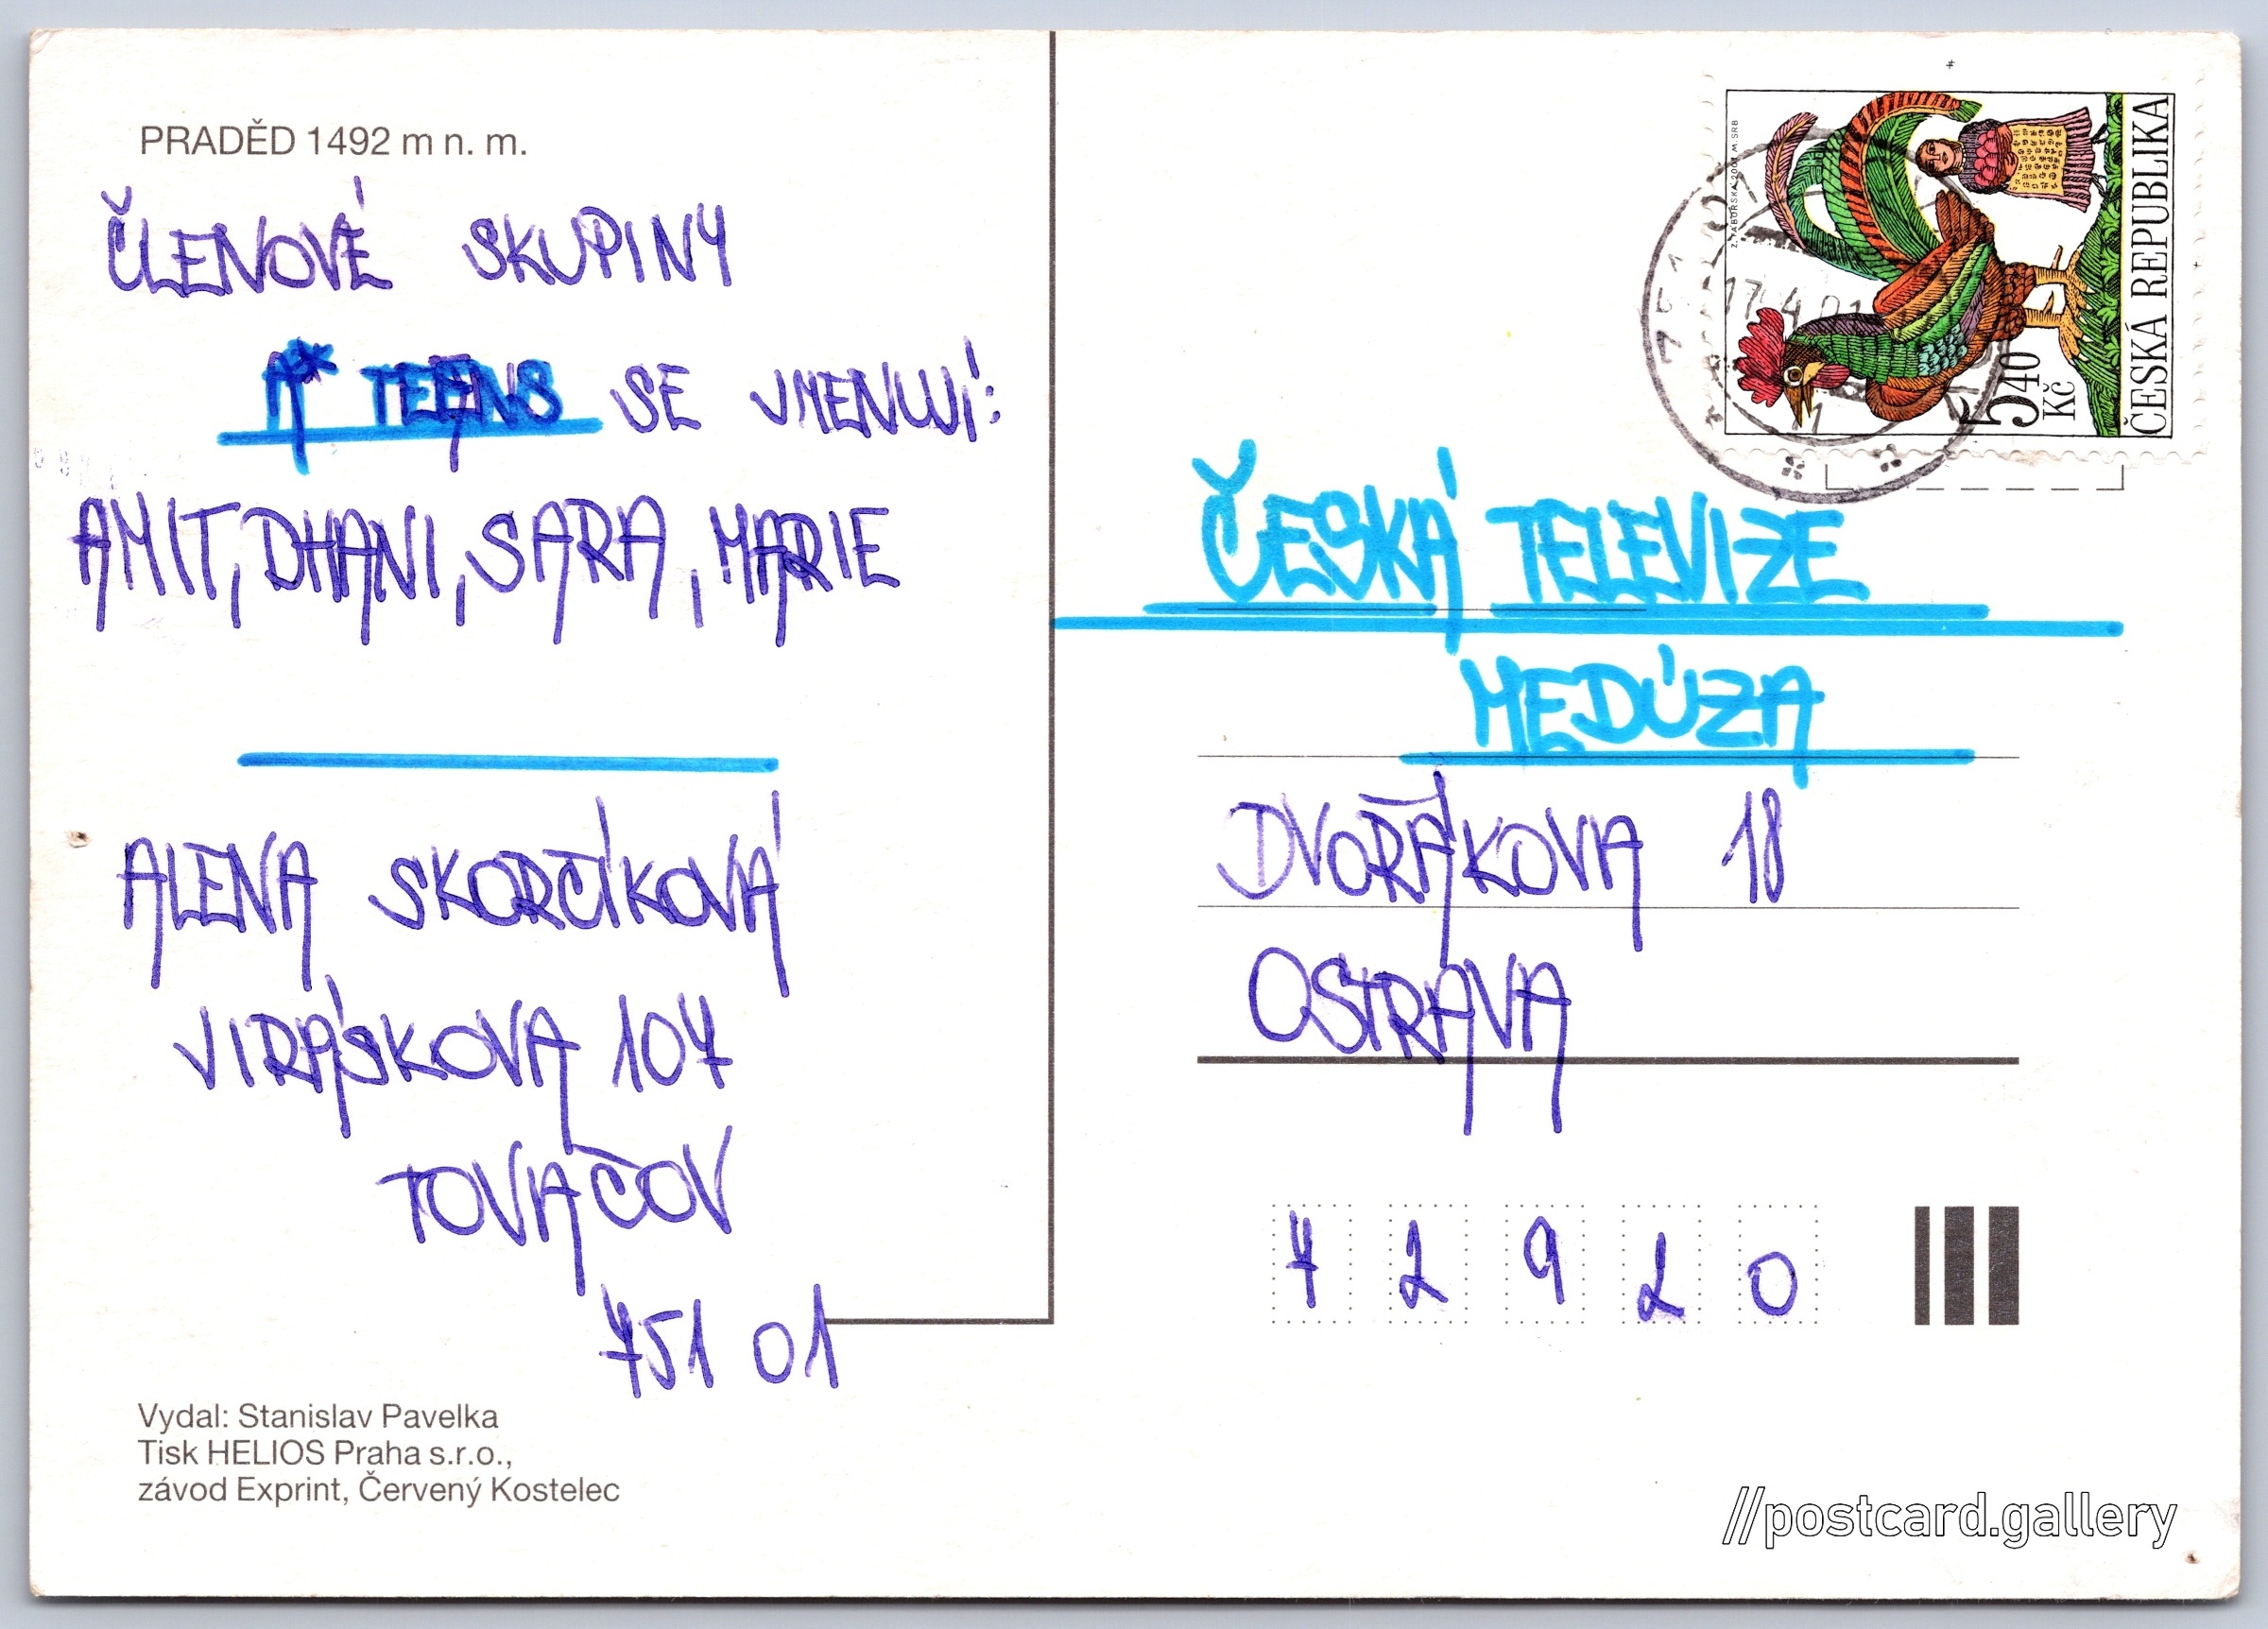 PRADĚD 1492 m n. m.
ČLENOVÉ SKUPINY
A* TEENS SE JMENUJÍ:
AMIT, DHANI, SARA, MARIE
ALENA SKORČÍKOVÁ
JIRÁSKOVA 107
TOVAČOV
751 01
Vydal: Stanislav Pavelka
Tisk HELIOS Praha s.r.o.,
závod Exprint, Červený Kostelec
ČESKÁ REPUBLIKA
5,40
Kč
17.4.01
ČESKÁ TELEVIZE
MEDÚZA
DVOŘÁKOVA 18
OSTRAVA
7 2 9 2 0
//postcard.gallery